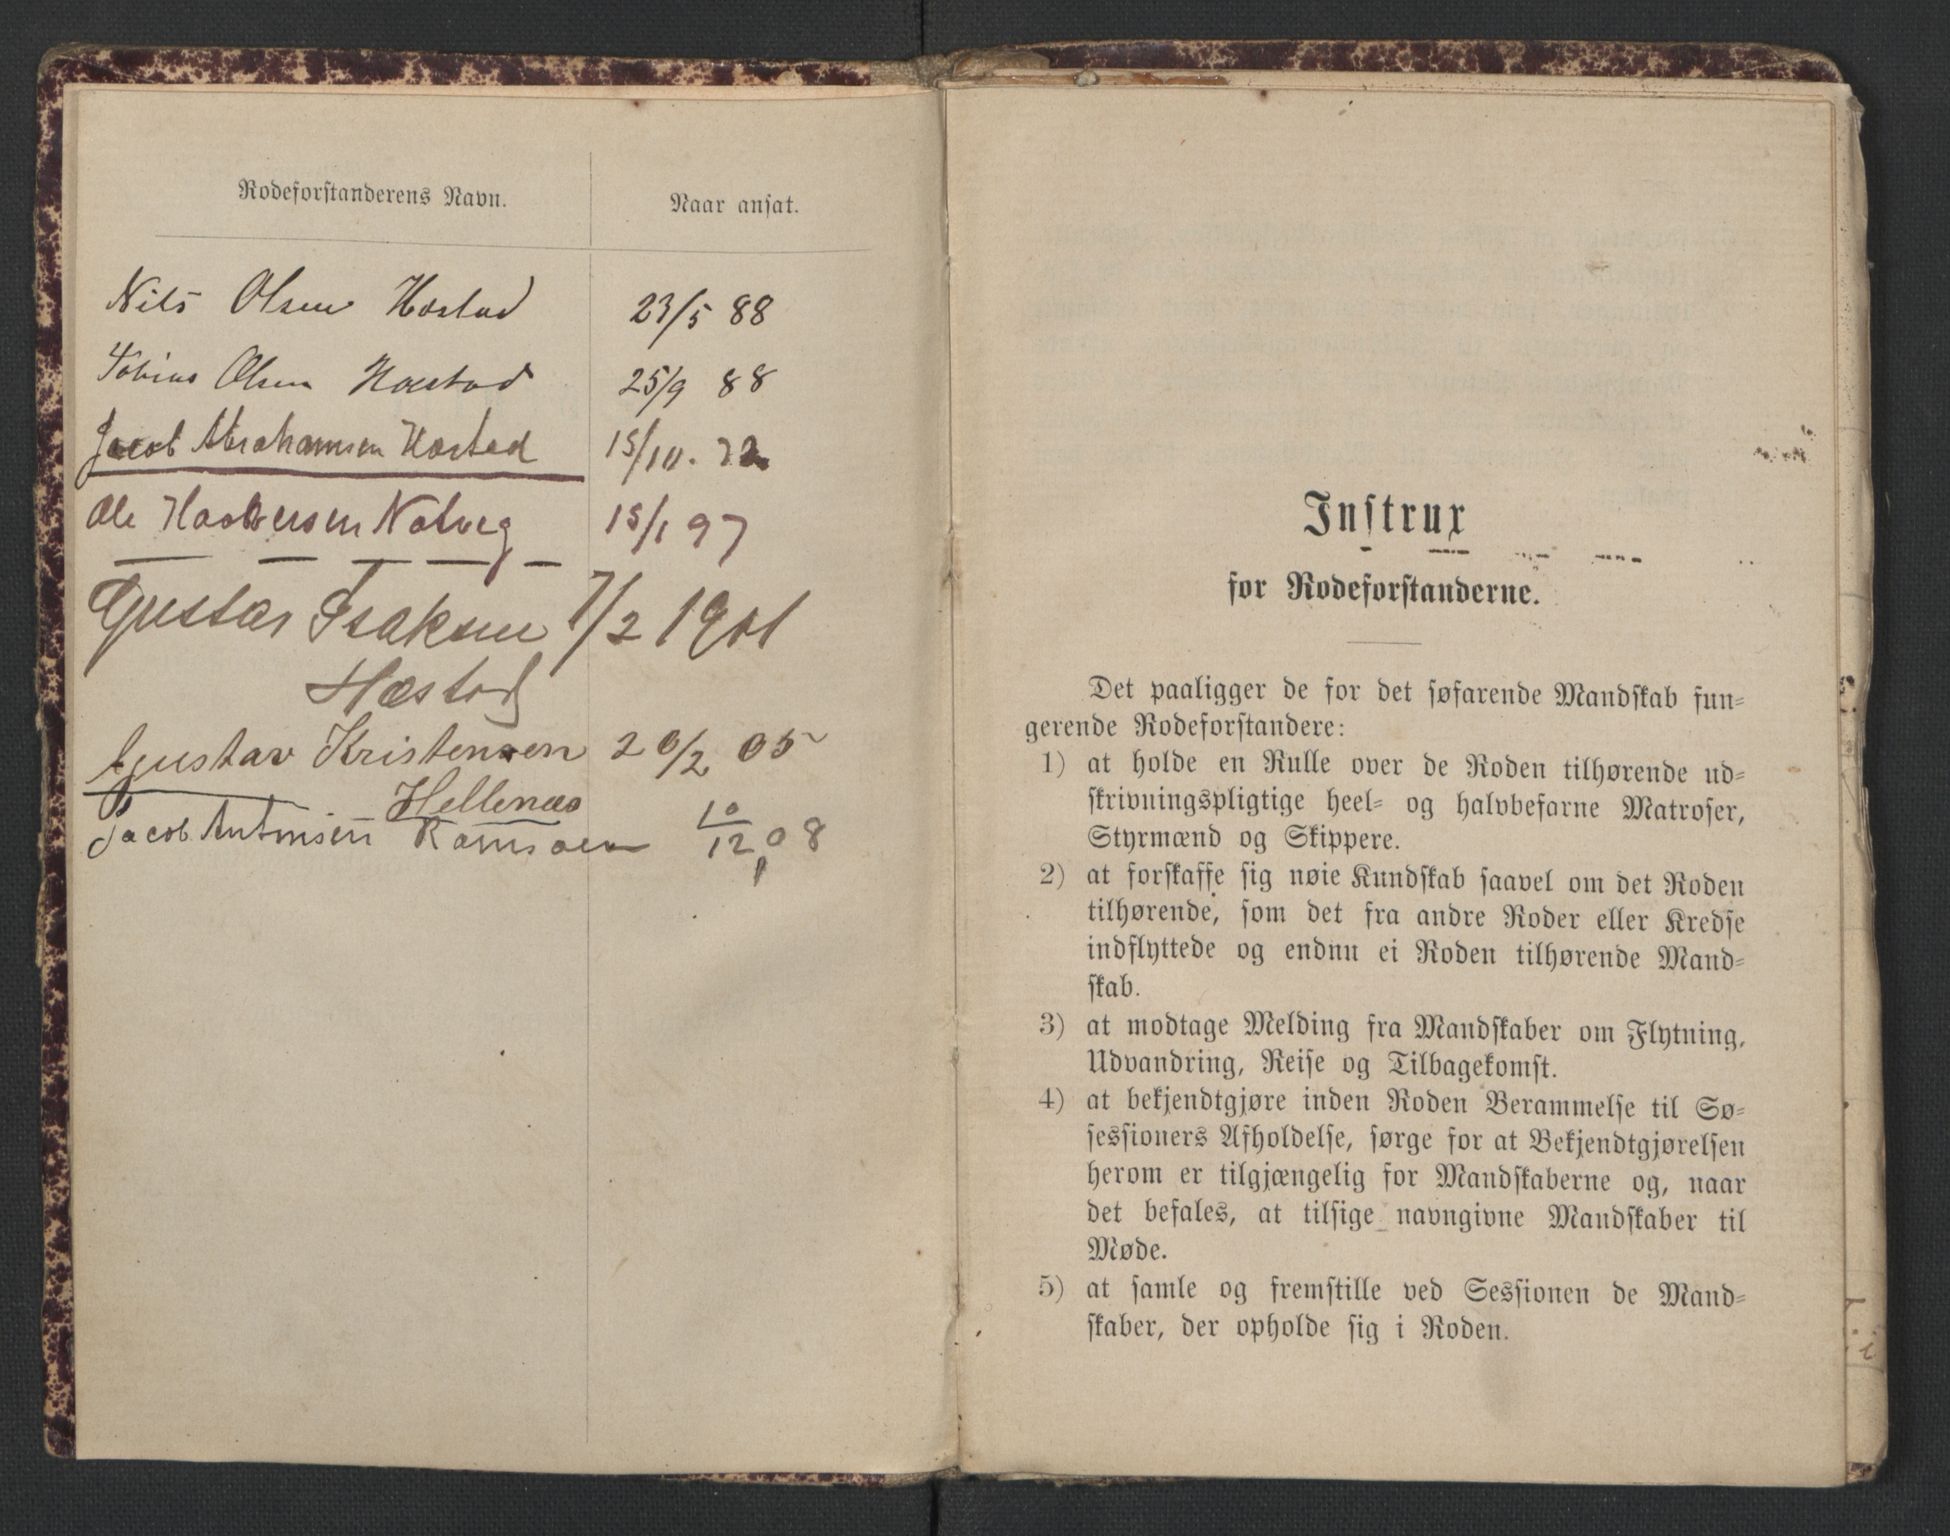 Rodeforstanderens Navn. Naar ansat.
Nils Olsen Hæstad 23/5 88
Tobias Olsen Hæstad 25/9 88
Jacob Abrahamsen Hæstad 15/10.
Ole 15/1 97
Gustav Isaksen 7/2 1901
Hæstad
Gustav Kristensen 20/2 05
Hellenæs
Jacob Antonsen 10/12 08
Instrux
for Rodeforstanderne.
Det paaligger de for det søfarende Mandskab fun-
gerende Rodeforstandere:
1) at holde en Rulle over de Roden tilhørende ud-
skrivningspligtige heel- og halvbefarne Matroser,
Styrmænd og Skippere.
2) at forskaffe sig nøie Kundskab saavel om det Roden
tilhørende, som det fra andre Roder eller Kredse
indflyttede og endnu ei Roden tilhørende Mand-
skab.
3) at modtage Melding fra Mandskaber om Flytning,
Udvandring, Reise og Tilbagekomst.
4) at bekjendtgjøre inden Roden Berammelse til Sø-
sessioners Afholdelse, sørge for at Bekjendtgjørelsen
herom er tilgjængelig for Mandskaberne og, naar
det befales, at tilsige navngivne Mandskaber til
Møde.
5) at samle og fremstille ved Sessionen de Mand-
skaber, der opholde sig i Roden.